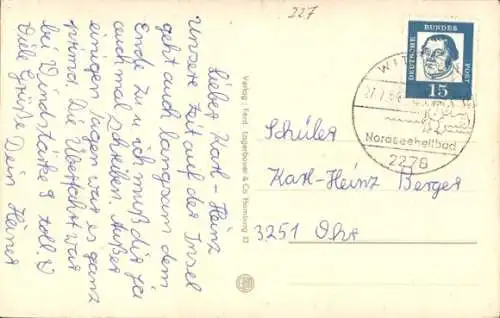 227
Lieber Karl-Heinz
Unsere Zeit auf der Insel
geht auch langsam dem
Ende zu u ich muß dir ja
auch mal schreiben. Außer
einigen Tagen war es ganz
prima. Die Überfahrt war
bei Windstärke 9 toll.
Viele Grüße Dein Heiner
Verlag: Ferd. Lagerbauer & Co. Hamburg 23
DEUTSCHE
BUNDES
POST
15
WIT
Nordseeheilbad
2278
Schüler
Karl-Heinz Berger
3251 Ohr